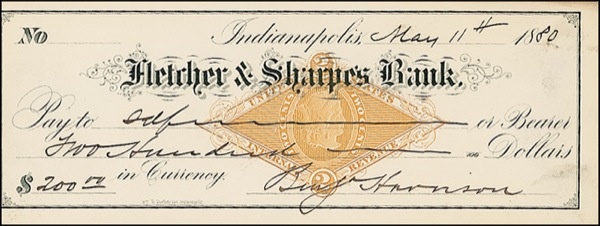 No Indianapolis, May 11th 1880
Fletcher & Sharpe's Bank,
Pay to self or Bearer
Two Hundred Dollars
$200.00 in Currency. Benj Harrison
UNITED STATES
TWO CENTS TWO CENTS
INTERNAL REVENUE
2